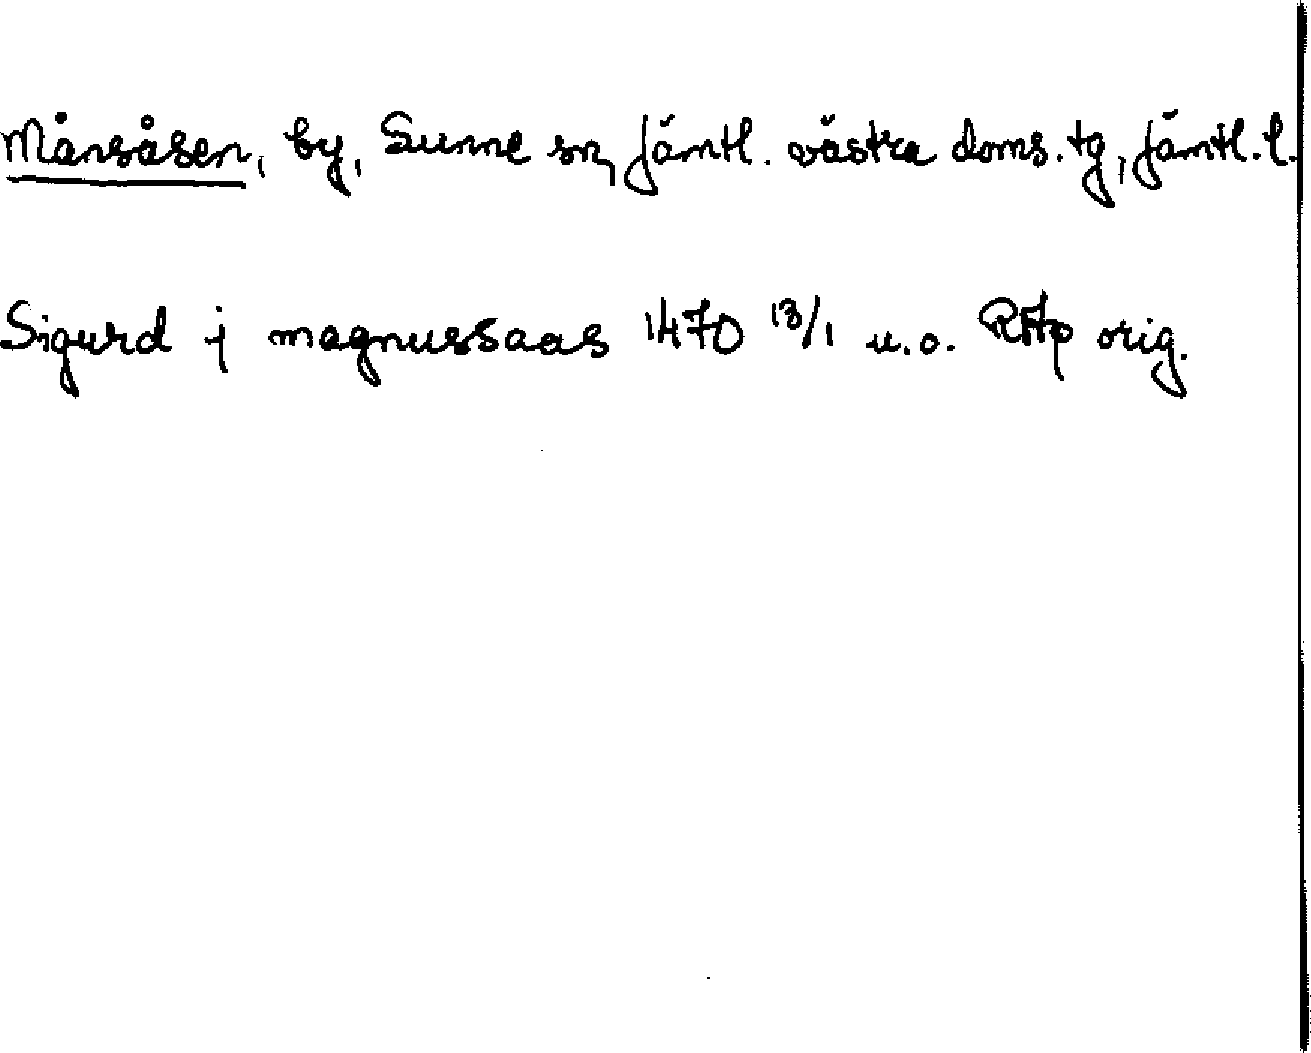 Månsåsen, by, Sunne sn, Jämtl. västra doms. tg, Jämtl. l.
Sigurd j magnussaas 1470 13/1 u.o. RAp orig.